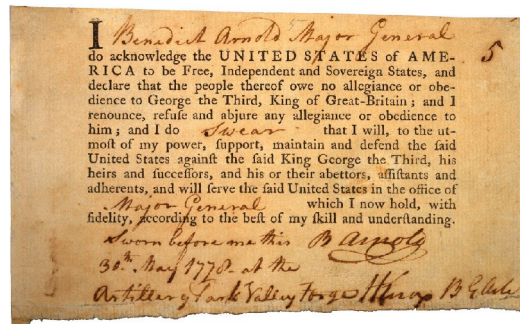 I Benedict Arnold Major General 5
do acknowledge the UNITED STATES of AME-
RICA to be Free, Independent and Sovereign States, and
declare that the people thereof owe no allegiance or obe-
dience to George the Third, King of Great-Britain; and I
renounce, refuse and abjure any allegiance or obedience to
him; and I do Swear that I will, to the ut-
moſt of my power, ſupport, maintain and defend the ſaid
United States againſt the ſaid King George the Third, his
heirs and ſucceſſors, and his or their abettors, aſſiſtants and
adherents, and will ſerve the ſaid United States in the office of
Major General which I now hold, with
fidelity, according to the beſt of my ſkill and underſtanding.
Sworn before me this B Arnold
30th May 1778 at the
Artillery Park Valley Forge HKnox B G Arty